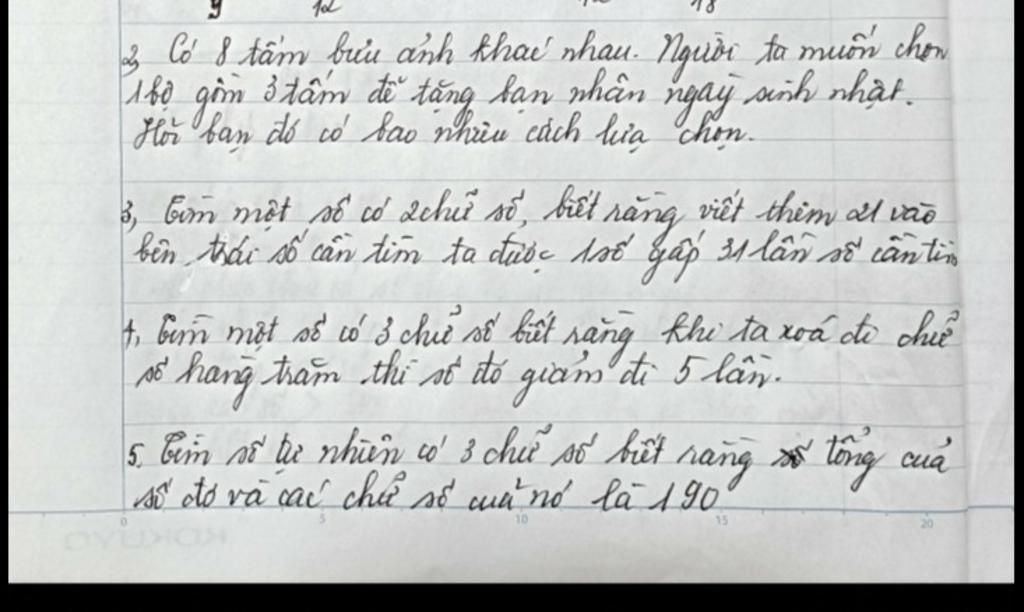 y 12 12 18
2, Có 8 tấm bưu ảnh khác nhau. Người ta muốn chọn
1 bộ gồm 3 tấm để tặng bạn nhân ngày sinh nhật.
Hỏi bạn đó có bao nhiêu cách lựa chọn.
3, Tìm một số có 2 chữ số, biết rằng viết thêm 21 vào
bên trái số cần tìm ta được 1 số gấp 31 lần số cần tìm
4, Tìm một số có 3 chữ số biết rằng khi ta xoá đi chữ
số hàng trăm thì số đó giảm đi 5 lần.
5. Tìm số tự nhiên có 3 chữ số biết rằng tổng của
số đó và các chữ số của nó là 190
0 5 10 15 20
KOKUYO